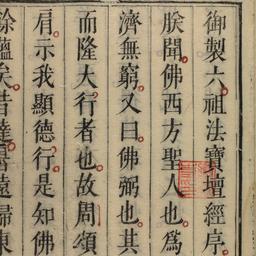 御製六祖法寶壇經序
朕聞佛西方聖人也為
濟無窮又曰佛弼也其
而隆大行者也故周頌
肩示我顯德行是知佛
餘蘊矣昔達磨遠歸東